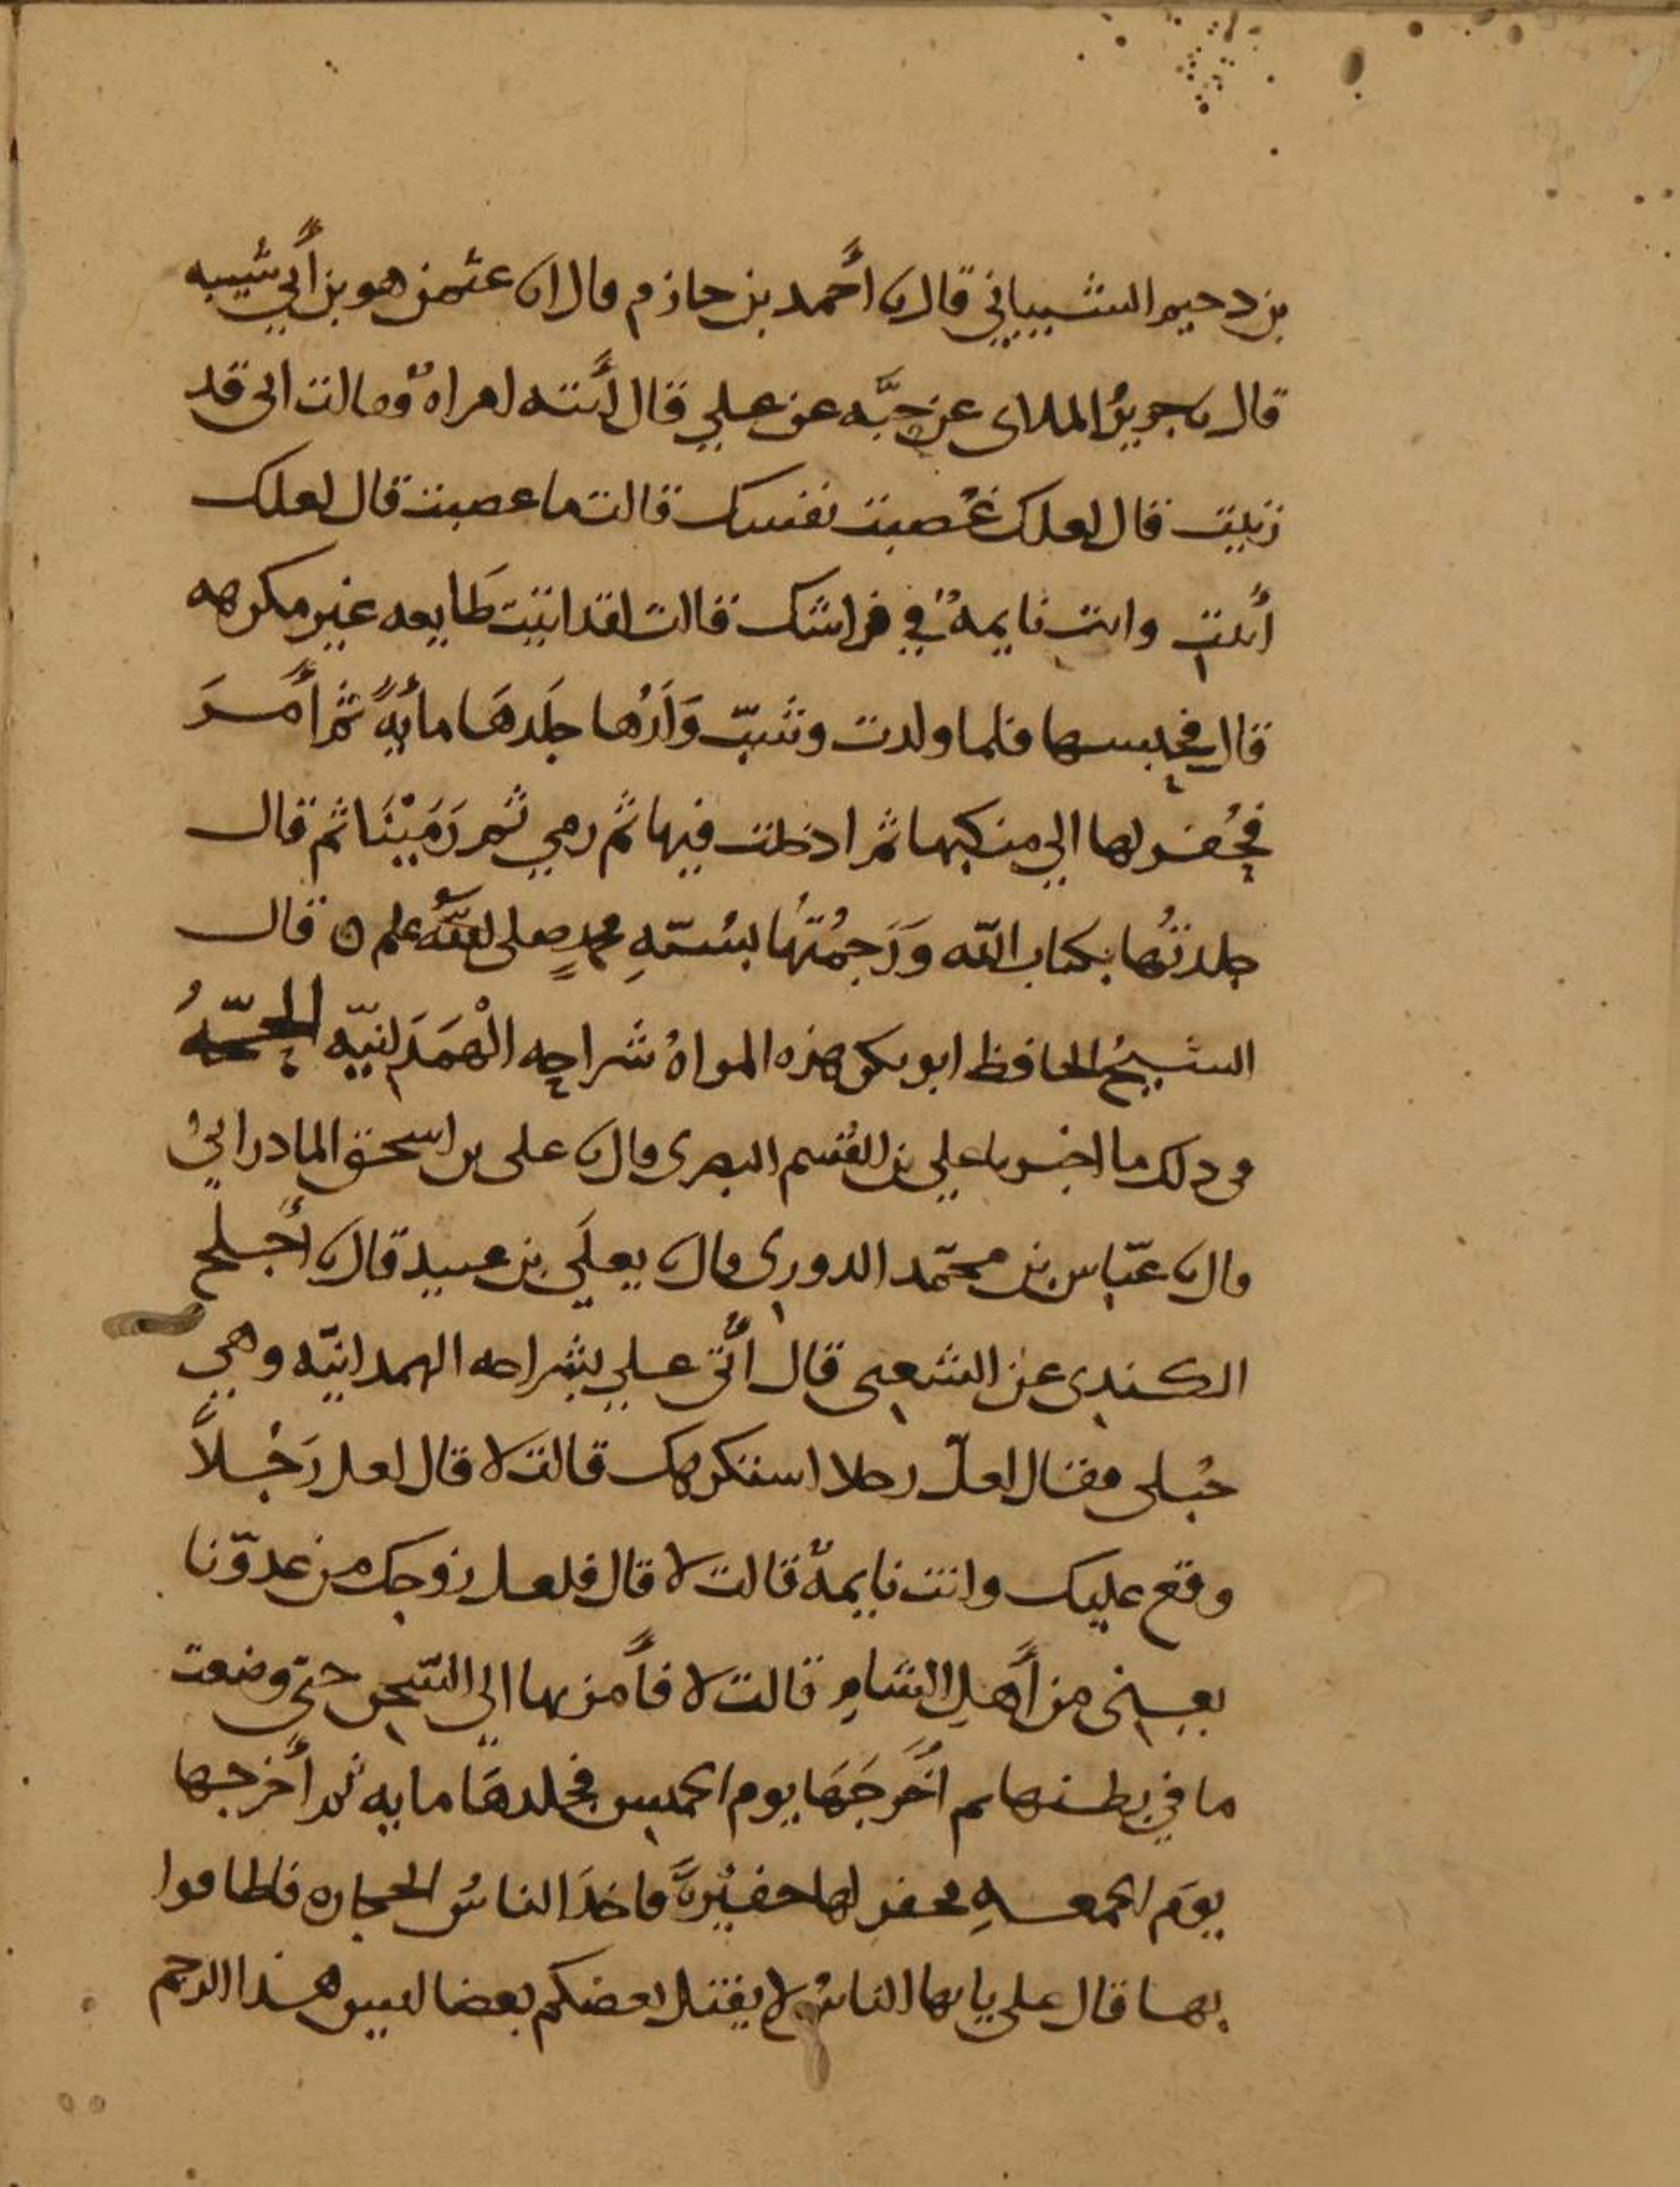 بن دحيم الشيباني قال نا أحمد بن حازم قال انا عثمن هو بن أبي شيبه
قال نا جرير الملاى عن حبَّه عن علي قال أتته امراةٌ فقالت انى قد
زنيت قال لعلك غُصبت نفسك قالت ما غصبت قال لعلك
أُتيت وانت نايمةٌ في فراشك قالت لقد اتيت طَايعه غير مكرهه
قال فحبسها فلما ولدت وشبّ وَلَدُها جلَدهَا مأيةً ثم أَمسرَ
فحُفر لها الي منكبها ثم ادخلت فيها ثم رمي ثم رَمَيْنَا ثم قال
جلدتُها بكتاب اللّه وَرَجمْتُها بسُنّةِ محمدٍ صلى اللهُ علم ٥ قال
الشيخُ الحافظ ابو بكر هذه المراةُ شراحه الْهَمَدَانيّه الحجّةُ
فى دلك ما اخبرنا علي بن القسم البصرى قال نا على بن اسحق المادرائىُ
قال نا عبّاس بن محمّد الدورى قال نا يعلَي بن عبيد قال نا أجلح
الكندى عن الشعبى قال أُتى علي بشراحه الهمدانيّه وهي
حُبلى فقال لعلّ رجلا استكرهك قالت لا قال لعل رَجُلاً
وقع عليك وانت نايمةٌ قالت لا قال فلعل زوجك من عدوّنا
يعنى من أَهلِ الشامِ قالت لا فأَمر بها الي السّجن حتى وضعت
ما في بطنها ثم اَخْرجَهَا يوم الخميس فجلدهَا مايه ثم أخرجها
يومَ الجمعهِ فحفر لها حفيْرةً فاخذَ الناسُ الحجاره فاطافوا
بها قال على يايها الناسُ لا يقتل بعضكم بعضا ليس هذا الرجم